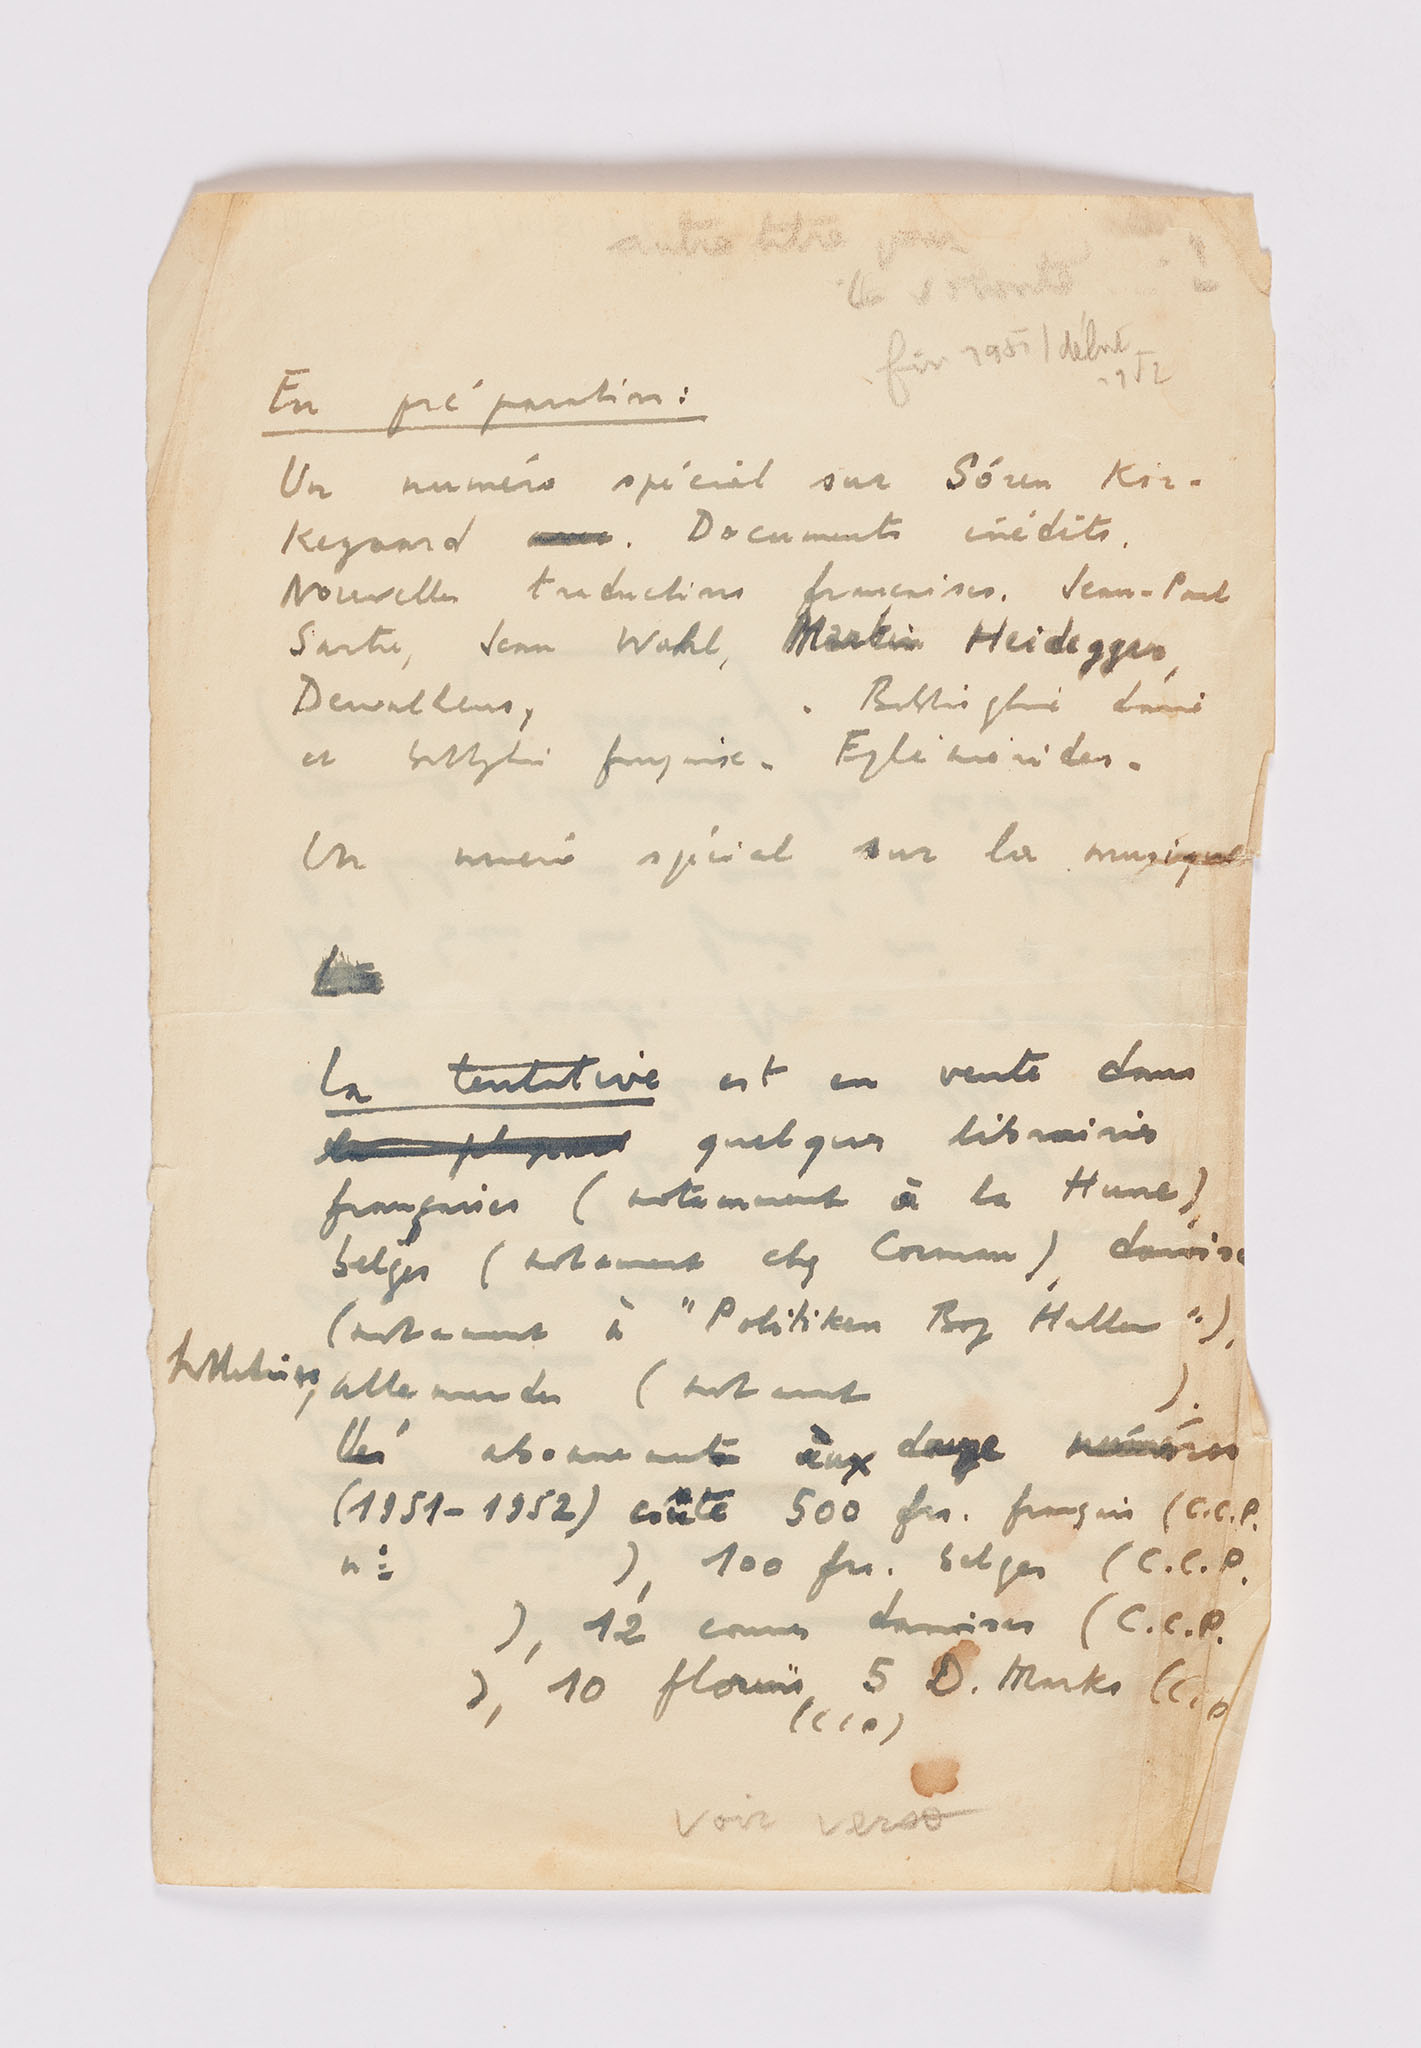 autre titre pour
la volonté
fin 1951 / début
1952
En préparation :
Un numéro spécial sur Sóren Kir-
kegaard . Documents inédits.
Nouvelles traductions françaises. Jean-Paul
Sartre, Jean Wahl, Martin Heidegger,
Dewalhens, . Bibliographie danoise
et bibliographie française. Ephémérides.
Un numéro spécial sur la musique
La
La tentative est en vente dans
quelques librairies
françaises (notamment à la Hune),
belges (notamment chez Corman), danoises
(notamment à "Politiken Bog Hallen"),
hollandaises, allemandes (notamment ).
abonnements aux douze numéros
(1951-1952) coûte 500 frs. français (C.C.P.
n° ), 100 frs. belges (C.C.P.
), 12 couronnes danoises (C.C.P.
), 10 florins, 5 D. Marks (CCP
(CCP)
voir verso